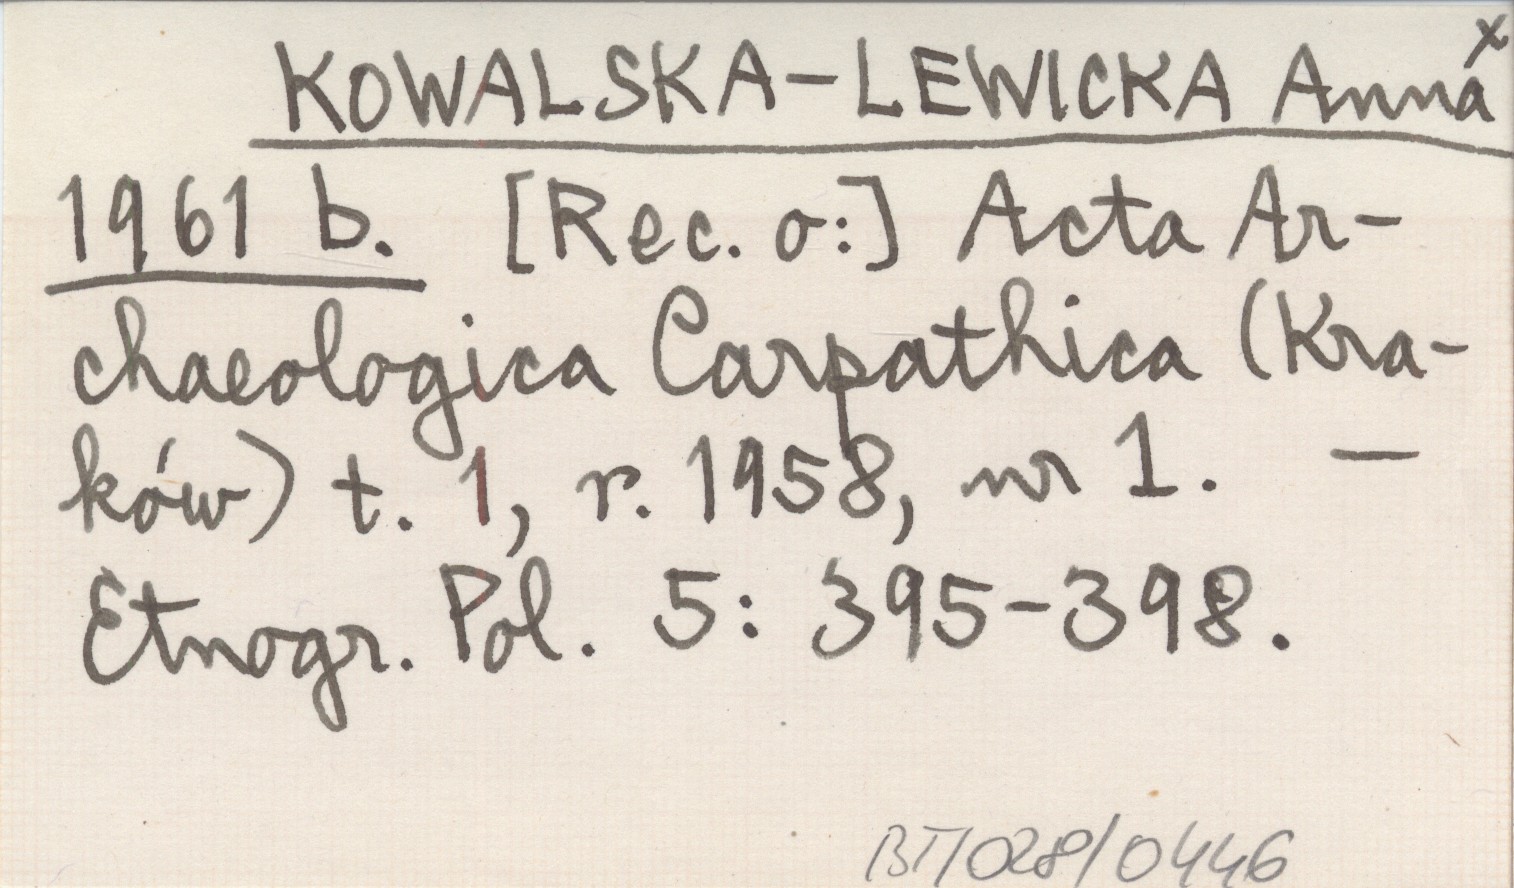 x
KOWALSKA-LEWICKA Anna
1961 b. [Rec. o:] Acta Ar-
chaeologica Carpathica (Kra-
ków) t. 1, r. 1958, nr 1. —
Etnogr. Pol. 5: 395-398.
BT/028/0446